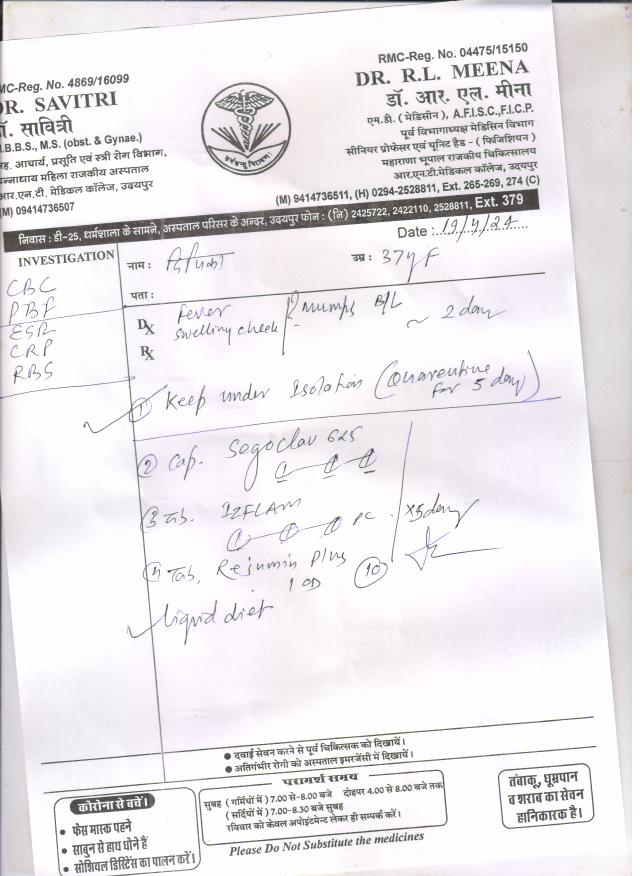 RMC-Reg. No. 04475/15150
DR. R.L. MEENA
डॉ. आर. एल. मीना
एम.डी. ( मेडिसीन ), A.F.I.S.C.,F.I.C.P.
पूर्व विभागाध्यक्ष मेडिसिन विभाग
सीनियर प्रोफेसर एवं यूनिट हैड - ( फिजिशियन )
महाराणा भूपाल राजकीय चिकित्सालय
आर.एन.टी.मेडिकल कॉलेज, उदयपुर
(M) 9414736511, (H) 0294-2528811, Ext. 265-269, 274 (C)
MC-Reg. No. 4869/16099
DR. SAVITRI
डॉ. सावित्री
.B.B.S., M.S. (obst. & Gynae.)
सह. आचार्य, प्रसूति एवं स्त्री रोग विभाग,
पन्नाधाय महिला राजकीय अस्पताल
आर.एन.टी. मेडिकल कॉलेज, उदयपुर
(M) 09414736507
निवास : डी-25, धर्मशाला के सामने, अस्पताल परिसर के अन्दर, उदयपुर फोन : (नि) 2425722, 2422110, 2528811, Ext. 379
Date : 19/4/24
INVESTIGATION
CBC
PBF
ESR
CRP
RBS
नाम : उम्र : 37y F
पता :
Dx Fever Mumps B/L ~ 2 day
Swelling cheek
Rx
① Keep under Isolation (Quarentine for 5 day)
② Cap. Segoclav 625
1 1 1
③ Tab. IZFLAM
1 1 PC x5day
④ Tab. Rejumin Plus
1 OD 10
liquid diet
● दवाई सेवन करने से पूर्व चिकित्सक को दिखायें।
● अतिगंभीर रोगी को अस्पताल इमरजेंसी में दिखायें।
कोरोना से बचें।
• फेस मास्क पहने
• साबुन से हाथ धोने हैं
• सोशियल डिस्टिंस का पालन करें।
परामर्श समय
सुबह ( गर्मियों में ) 7.00 से-8.00 बजे दोहपर 4.00 से 8.00 बजे तक
( सर्दियों में ) 7.00-8.30 बजे सुबह
रविवार को केवल अपोइंटमेन्ट लेकर ही सम्पर्क करें।
Please Do Not Substitute the medicines
तंबाकू, धूम्रपान
व शराब का सेवन
हानिकारक है।